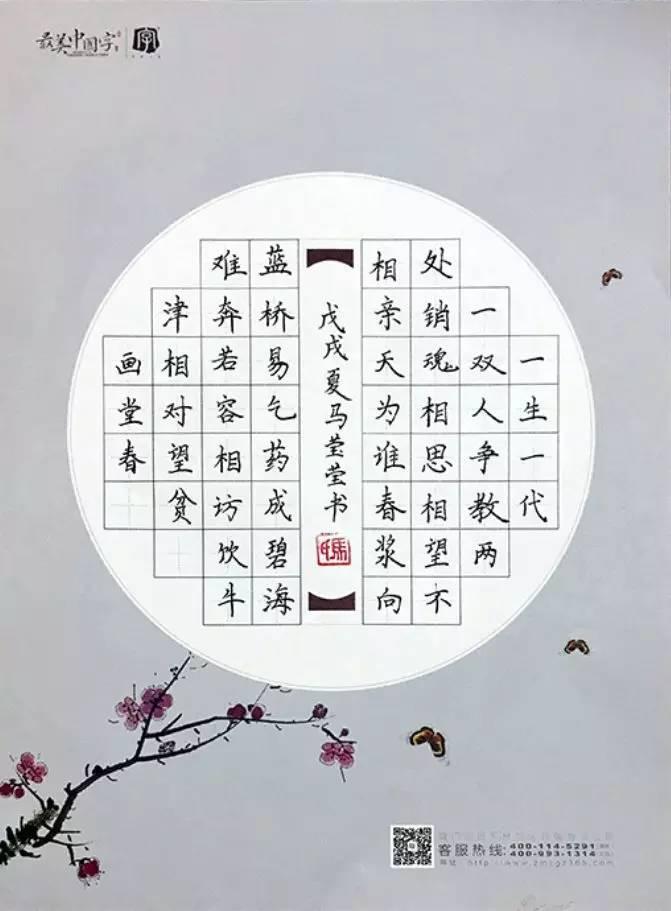 最美中国字
字
一生一代
一双人争教两
处销魂相思相望不
相亲天为谁春浆向
戊戌夏马莹莹书
蓝桥易乞药成碧海
难奔若容相访饮牛
津相对望贫
画堂春
客服热线: 400-114-5291
400-993-1314